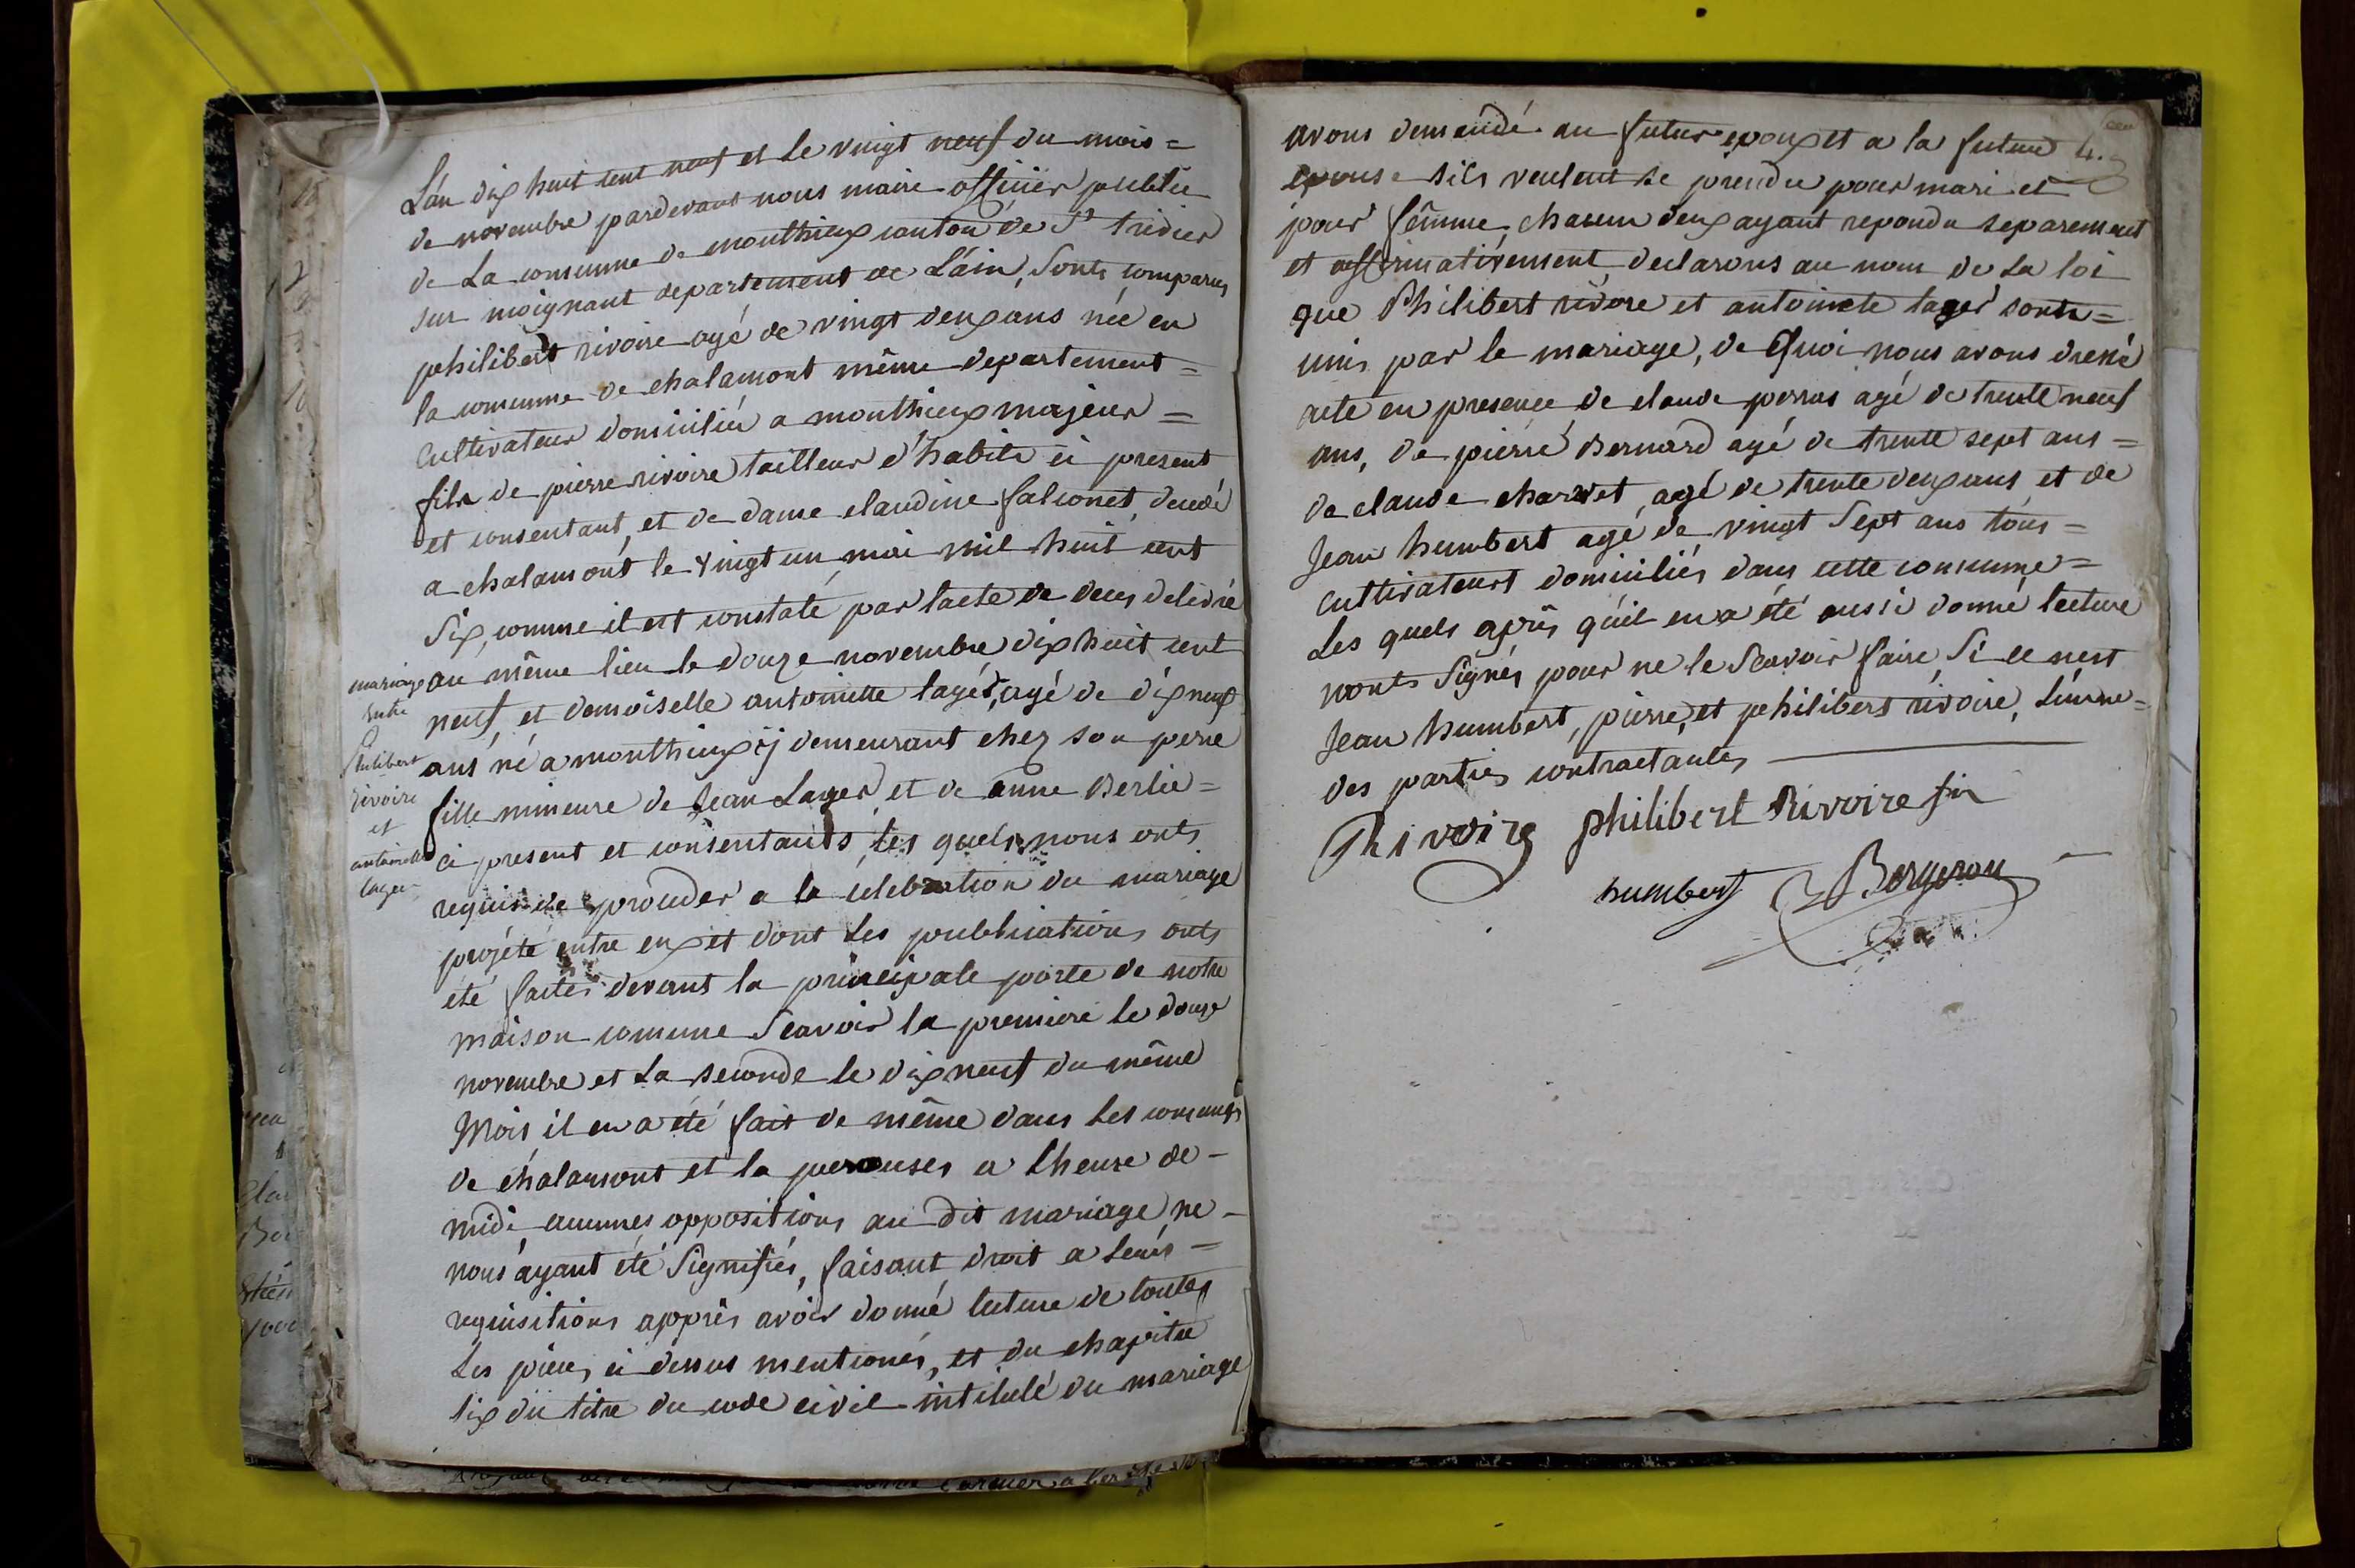 L'an dix huit cent neuf et le vingt neuf du mois =
de novembre pardevant nous maire officier public
de La comunne de monthieux canton de St tridier
sur moignant departement de L'ain, Sonts comparus
philibert rivoire agé de vingt deux ans née en
la comunne de chalamont même departement =
Cultivateur domicilié a monthieux majeur =
fils de pierre rivoire tailleur d'habits ci present
et consentant, et de dame claudine falconet, decedé
a chalamont le vingt un mai mil huit cent
Six, comme il est constaté par lacte de deces delivré
au même lieu le douze novembre dix huit cent
neuf, et demoiselle antoinette lager, agé de dix neuf
ans né a monthieux ij demeurant chez son perre
fille mineure de Jean Lager et de anne Berlie =
ci present et consentants, Les quels nous onts
requis de proceder a la celebration du mariage
projété entre eux et dont Les publications onts
été faites devant la principale porte de notre
maison comune Scavoir la premiere Le douze
novembre et La seconde le dix neuf du même
Mois il en a été fait de même dans Les comunes
de chalamont et la perouses a Lheure de -
midi aucunes oppositions au dit mariage ne -
nous ayant été Signifiés, faisant droit a Leurs =
requisitions apprès avoir donné lecture de toutes
Les pieces ci dessus mentionés, et du chapitre
six du titre du code civil intitulé du mariage
mariage
entre
Philibert
rivoire
et
antoinette
lager
avons demandé au futur epoux et a la future
epouse sils veulent se prendre pour mari et
pour femme, chacun deux ayant repondu separement
et affirmativement, declarons au nom de La loi
que Philibert rivoire et antoinete lager sonts =
unis par le mariage, de Quoi nous avons dressé
acte en presence de claude perras agé de trente neuf
ans, de pierre Bernard agé de trente sept ans =
de claude charvet, agé de trente deux ans et de
Jean humbert agé de vingt Sept ans tous =
cultivateurs domiciliés dans cette comunne =
Les quels après qu'il en a été aussi donné lecture
nonts Signés pour ne le Scavoir faire, Si ce nest
Jean humbert, pierre, et philibert rivoire, L'unne =
des parties contractantes
Rivoire philibert Rivoire fils
humbert Bergeron